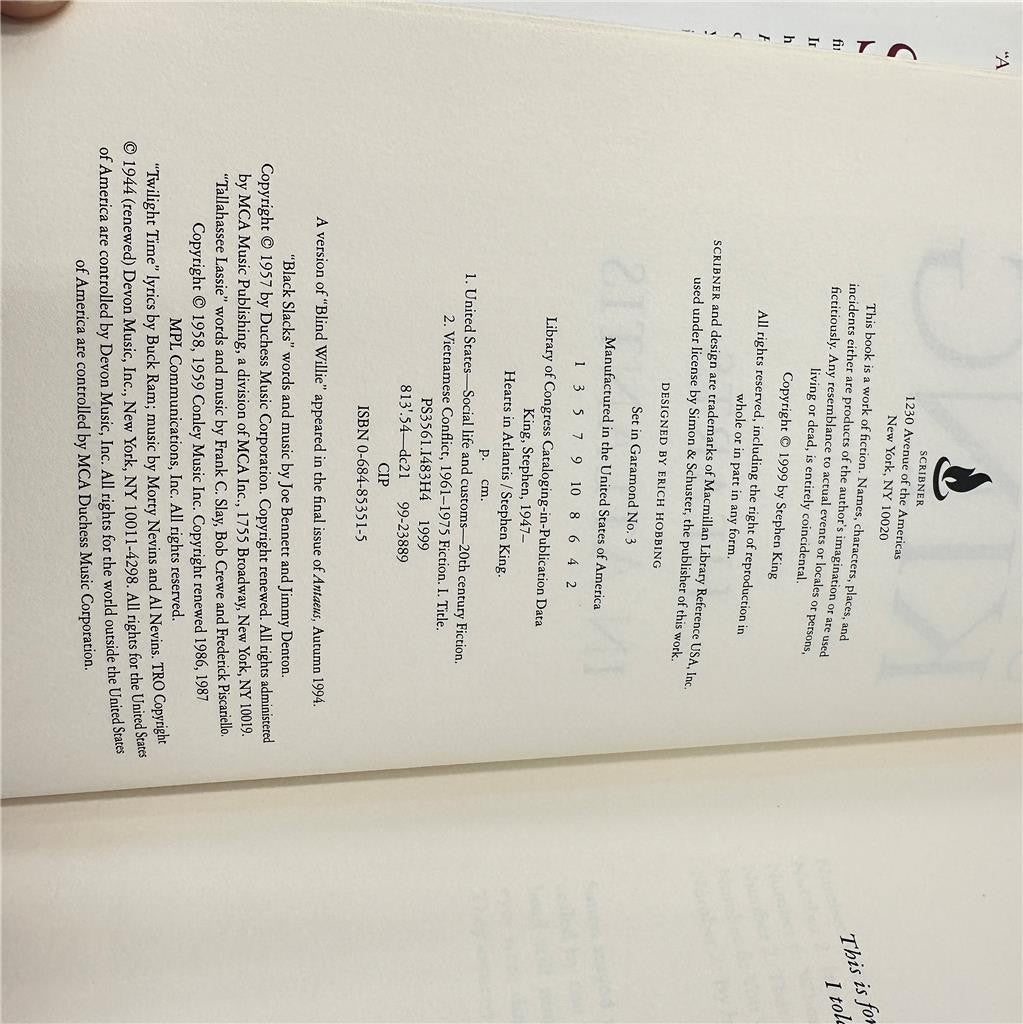 SCRIBNER
1230 Avenue of the Americas
New York, NY 10020
This book is a work of fiction. Names, characters, places, and
incidents either are products of the author's imagination or are used
fictitiously. Any resemblance to actual events or locales or persons,
living or dead, is entirely coincidental.
Copyright © 1999 by Stephen King
All rights reserved, including the right of reproduction in
whole or in part in any form.
SCRIBNER and design are trademarks of Macmillan Library Reference USA, Inc.
used under license by Simon & Schuster, the publisher of this work.
DESIGNED BY ERICH HOBBING
Set in Garamond No. 3
Manufactured in the United States of America
1 3 5 7 9 10 8 6 4 2
Library of Congress Cataloging-in-Publication Data
King, Stephen, 1947–
Hearts in Atlantis / Stephen King.
p. cm.
1. United States—Social life and customs—20th century Fiction.
2. Vietnamese Conflict, 1961–1975 Fiction. I. Title.
PS3561.I483H4 1999
813'.54—dc21 99-23889
CIP
ISBN 0-684-85351-5
A version of "Blind Willie" appeared in the final issue of Antaeus, Autumn 1994.
"Black Slacks" words and music by Joe Bennett and Jimmy Denton.
Copyright © 1957 by Duchess Music Corporation. Copyright renewed. All rights administered
by MCA Music Publishing, a division of MCA Inc., 1755 Broadway, New York, NY 10019.
"Tallahassee Lassie" words and music by Frank C. Slay, Bob Crewe and Frederick Piscariello.
Copyright © 1958, 1959 Conley Music Inc. Copyright renewed 1986, 1987
MPL Communications, Inc. All rights reserved.
"Twilight Time" lyrics by Buck Ram; music by Morty Nevins and Al Nevins. TRO Copyright
© 1944 (renewed) Devon Music, Inc., New York, NY 10011-4298. All rights for the United States
of America are controlled by Devon Music, Inc. All rights for the world outside the United States
of America are controlled by MCA Duchess Music Corporation.
This is for
I told